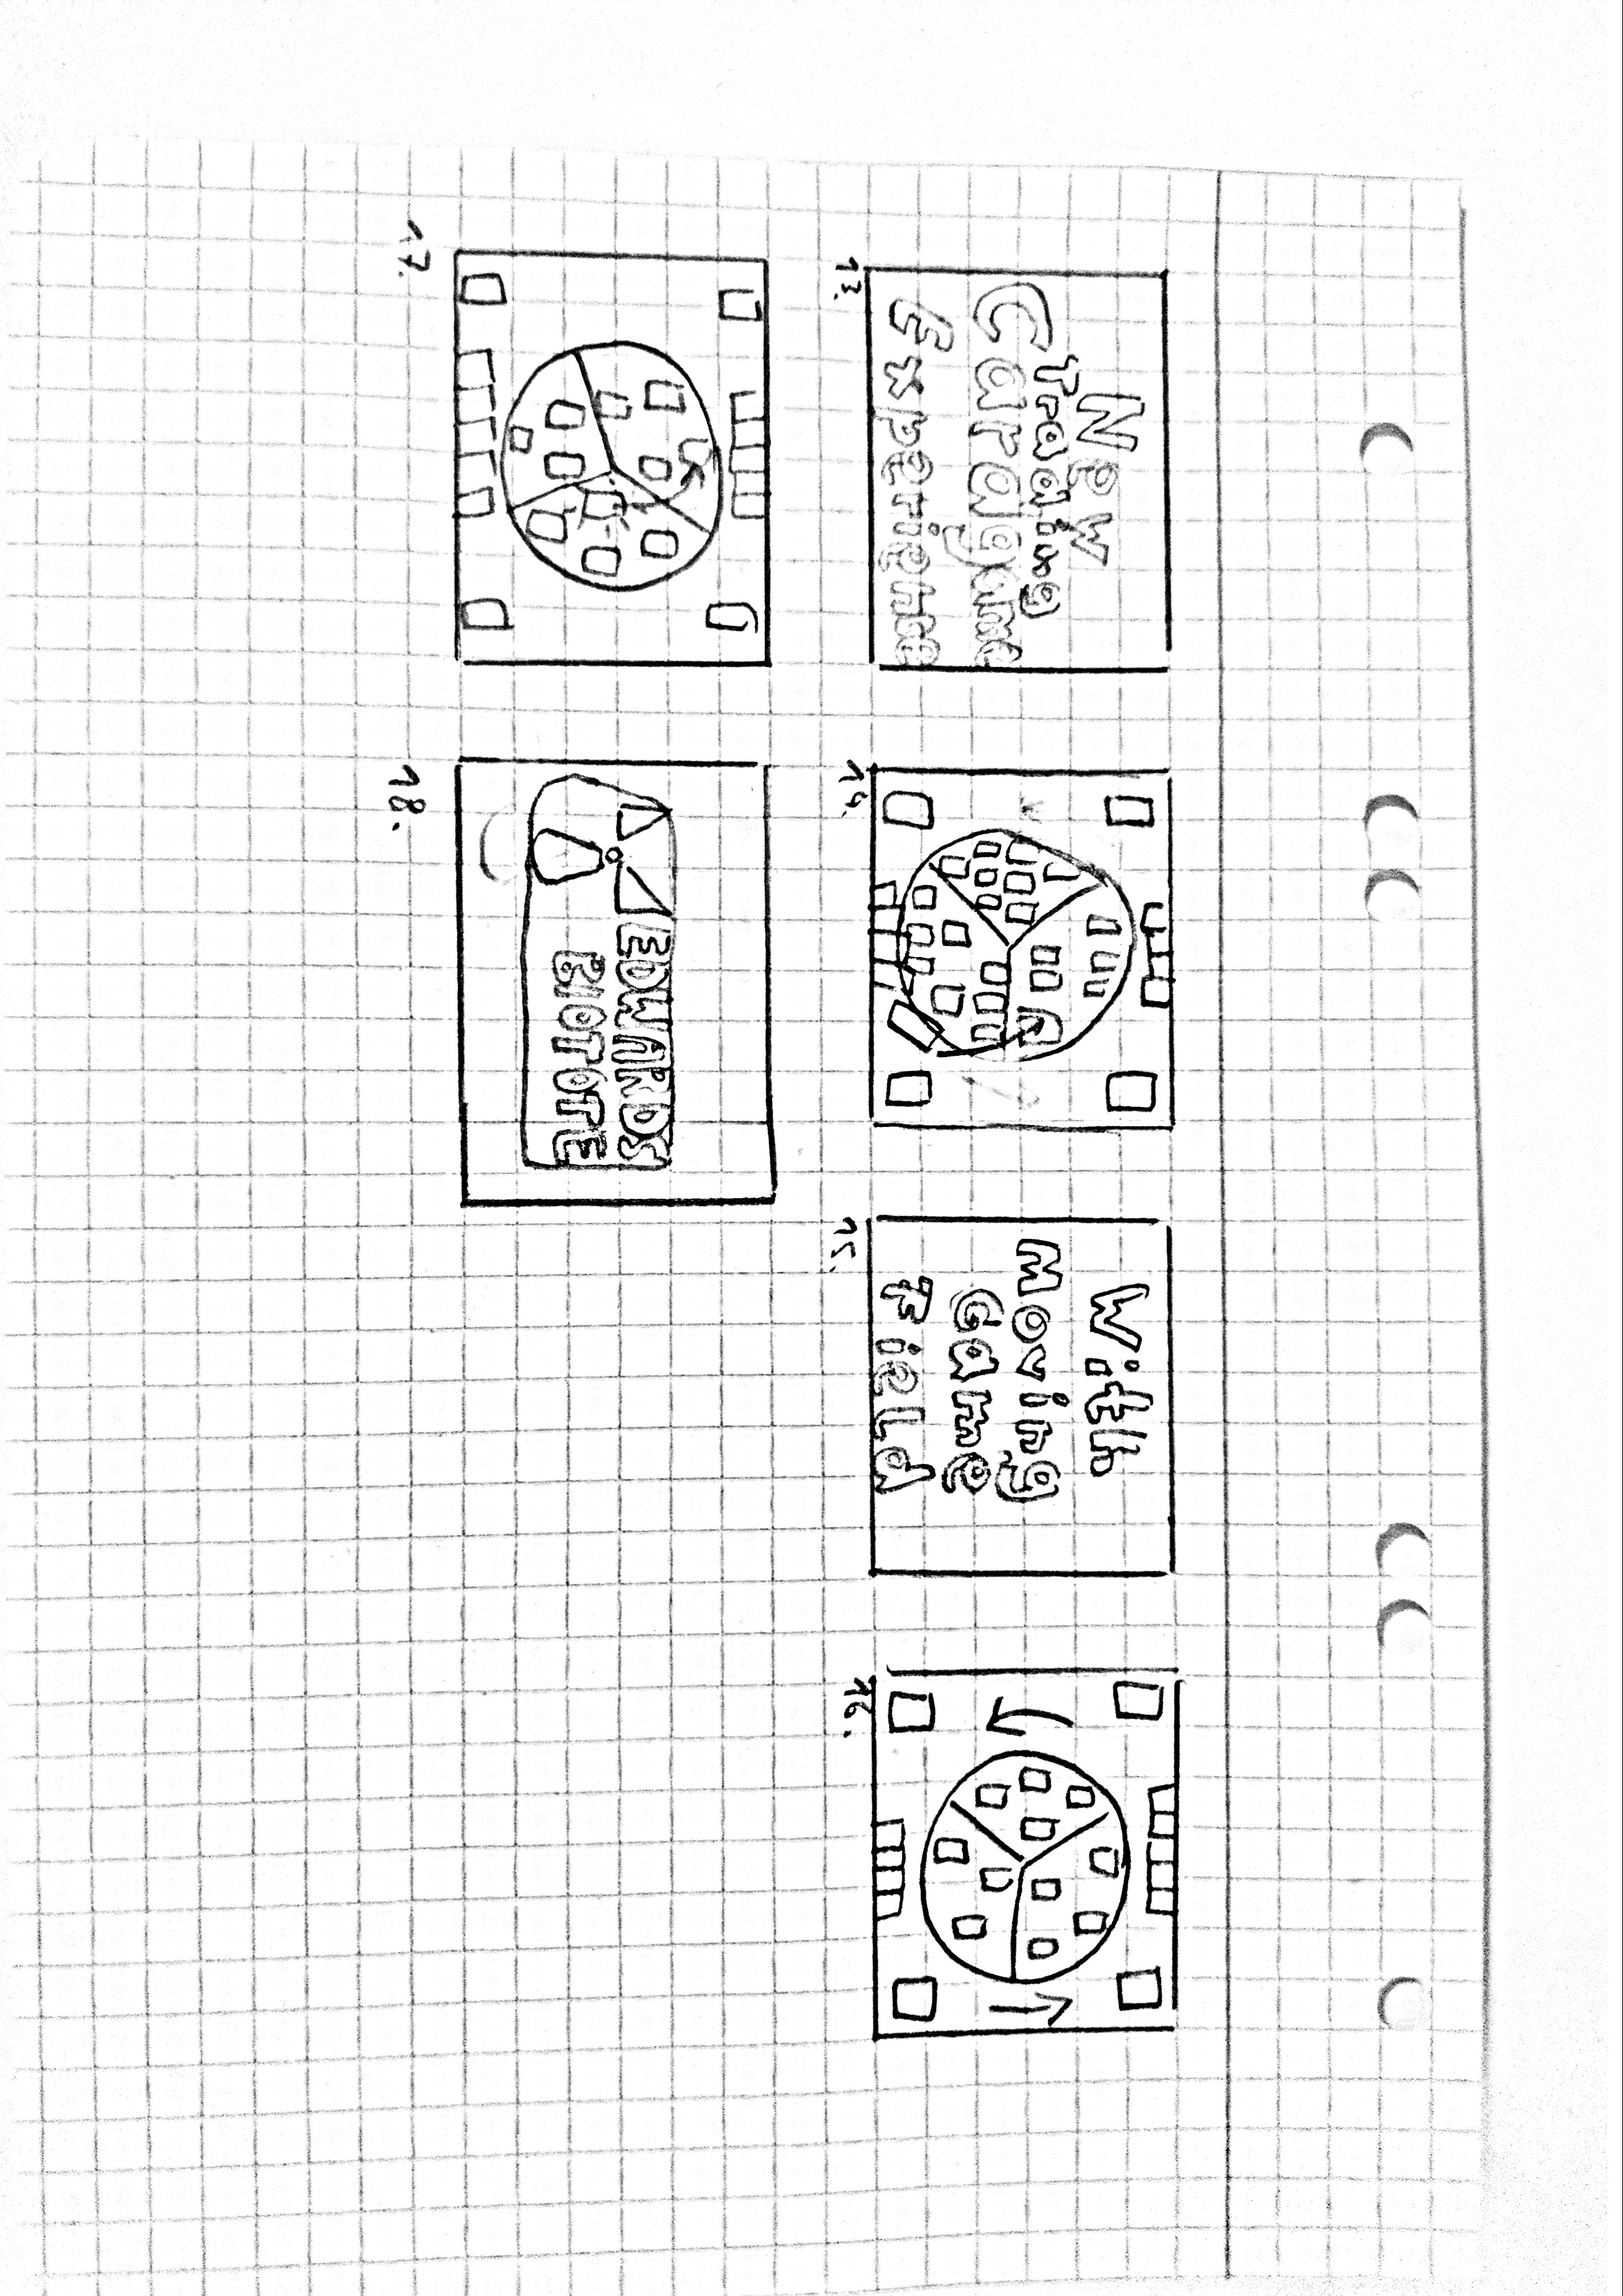 New
Trading
Cardgame
Experience
13.
14.
With
Moving
Game
Field
15.
16.
17.
EDWARDS
BIOTOTE
18.